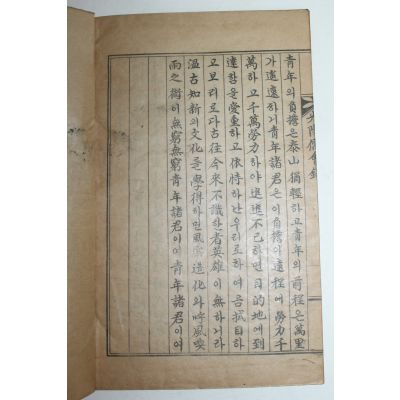 靑年의負擔은泰山倘輕하고靑年의前程은萬里
가遙遠하니靑年諸君은이負擔이遠程에勞力千
萬하고千萬勞力하야進進不已하면目的地에到
達함을愛重하고依恃하난우리로하여금拭目하
고보리로다古往今來不識한者英雄이無하니라
溫古知新의文化를學得하면風雲造化와吟風喫
雨之術이無窮無窮靑年諸君이여靑年諸君이여